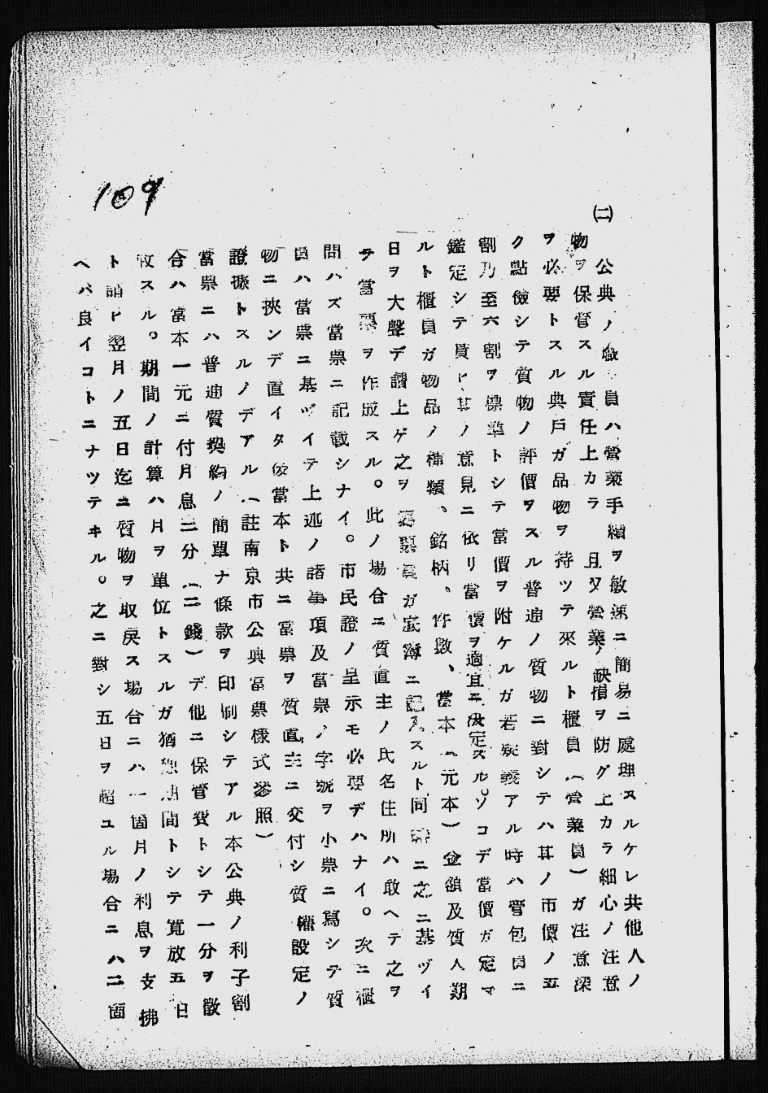 109
(二)
公典ノ職員ハ營業手續ヲ敏速ニ簡易ニ處理スルケレ共他人ノ
物ヲ保管スル責任上カラ 且又營業ノ缺損ヲ防グ上カラ細心ノ注意
ヲ必要トスル典戶ガ品物ヲ持ツテ來ルト櫃員(營業員)ガ注意深
ク點儉シテ質物ノ評價ヲスル普通ノ質物ニ對シテハ其ノ市價ノ五
割乃至六割ヲ標準トシテ當價ヲ附ケルガ若疑義アル時ハ管包員ニ
鑑定シテ貰ヒ其ノ意見ニ依リ當價ヲ適宜ニ決定スル。ソコデ當價ガ定マ
ルト櫃員ガ物品ノ種類、銘柄、件數、當本(元本)金額及質入期
日ヲ大聲デ讀上ゲ之ヲ寫票員ガ底簿ニ記入スルト同時ニ之ニ基ヅイ
テ當票ヲ作成スル。此ノ場合ニ質直主ノ氏名住所ハ敢ヘテ之ヲ
問ハズ當票ニ記載シナイ。市民證ノ呈示モ必要デハナイ。次ニ櫃
員ハ當票ニ基ヅイテ上述ノ諸事項及當票ノ字號ヲ小票ニ寫シテ質
物ニ挾ンデ直イタ後當本ト共ニ當票ヲ質直主ニ交付シ質權設定ノ
證據トスルノデアル(註南京市公典當票樣式參照)
當票ニハ普通質契約ノ簡單ナ條款ヲ印刷シテアル本公典ノ利子割
合ハ當本一元ニ付月息二分(二錢)デ他ニ保管費トシテ一分ヲ徵
收スル。期間ノ計算ハ月ヲ單位トスルガ猶豫期間トシテ寬放五日
ト謂ヒ翌月ノ五日迄ニ質物ヲ取戾ス場合ニハ一箇月ノ利息ヲ支拂
ヘバ良イコトニナツテヰル。之ニ對シ五日ヲ超ユル場合ニハ二箇